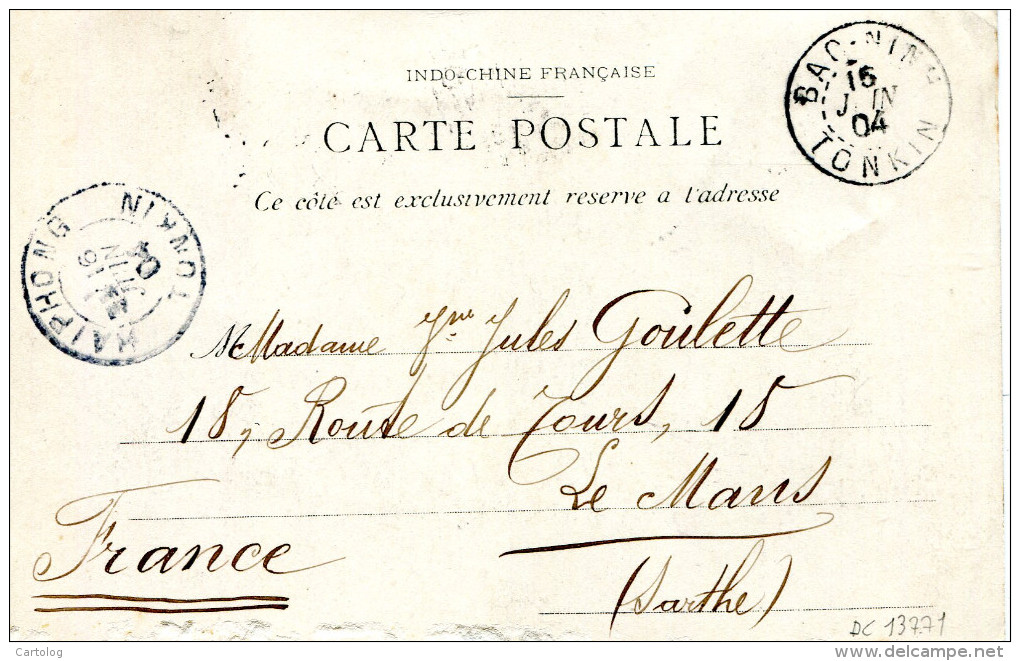 INDO-CHINE FRANÇAISE
CARTE POSTALE
Ce côté est exclusivement reserve a l'adresse
BAC-NINH
16
JUIN
04
TONKIN
HAIPHONG
TONKIN
16
JUIN
04
Madame Jules Goulette
18, Route de Tours, 18
Le Mans
(Sarthe)
France
DC 13771
Cartolog
delcampe.net